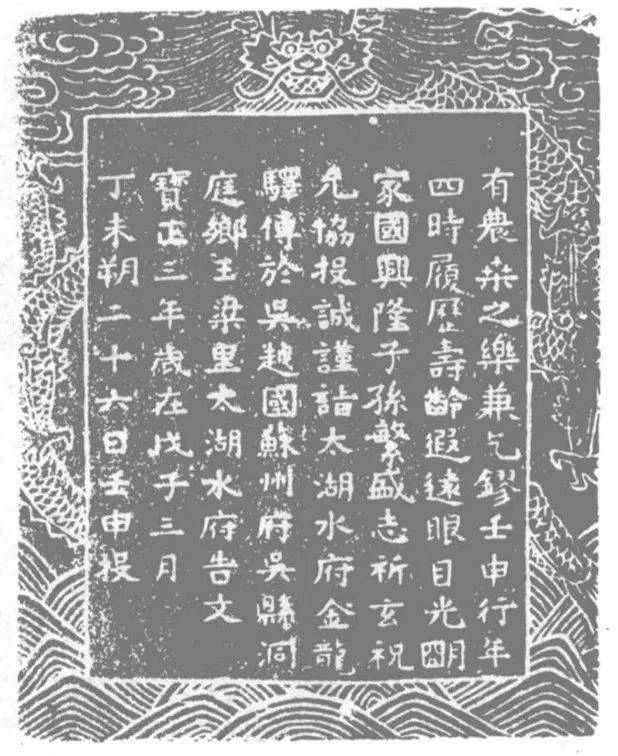 有農桒之樂兼乞鏐壬申行年
四時履歷壽齡遐遠眼目光朙
家國興隆子孫繁盛志祈玄祝
允協投誠謹詣太湖水府金龍
驛傳於吳越國蘇州府吳縣洞
庭鄉王梁里太湖水府告文
寶正三年歲在戊子三月
丁未朔二十六日壬申投